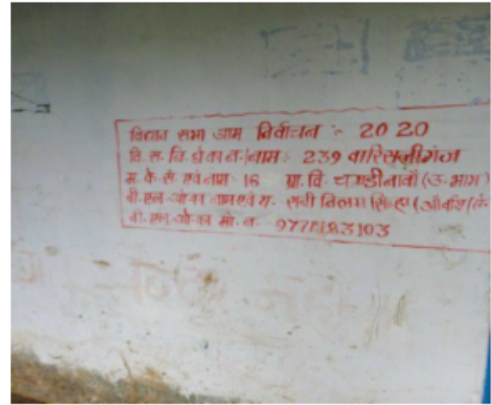 विधान सभा आम निर्वाचन :- 2020
वि. स. नि. क्षे. का न. / नाम : 239 वारिसलीगंज
म. के. सं. एवं नाम - 16 प्रा. वि. चण्डीनावाँ (उ. भाग)
बी. एल. ओ. का नाम एवं प. - सुश्री सिन्हा (आँ०
बी. एल. ओ. का मो. न. -